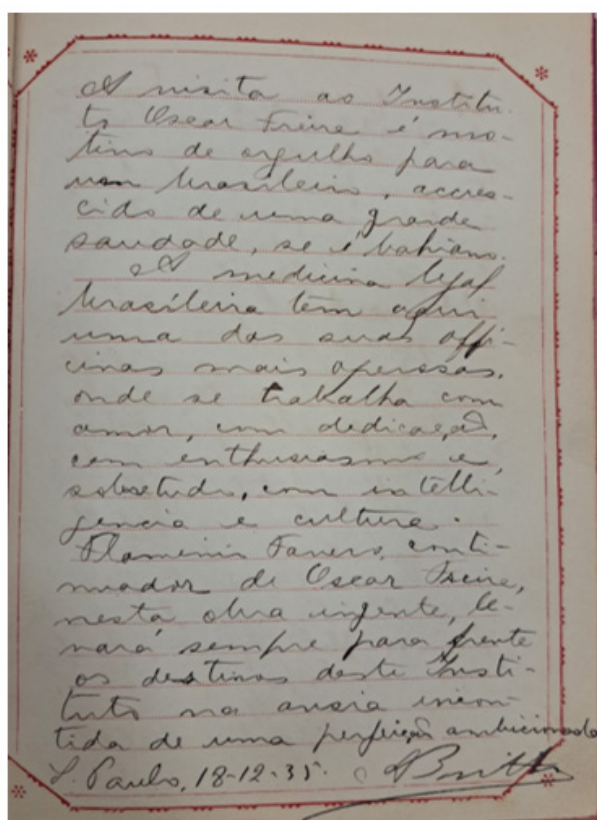 A visita ao Institu-
to Oscar Freire é mo-
tivo de orgulho para
um brasileiro, accres-
cido de uma grande
saudade, se é bahiano.
A medicina legal
brasileira tem aqui
uma das suas offi-
cinas mais operosas,
onde se trabalha com
amor, com dedicação,
com enthusiasmo e,
sobretudo, com intelli-
gencia e cultura.
Flaminio Favero, conti-
nuador de Oscar Freire,
nesta obra ingente, le-
vará sempre para frente
os destinos deste Insti-
tuto na ansia incon-
tida de uma perfeição ambicionada
S. Paulo, 18-12-35. Britto